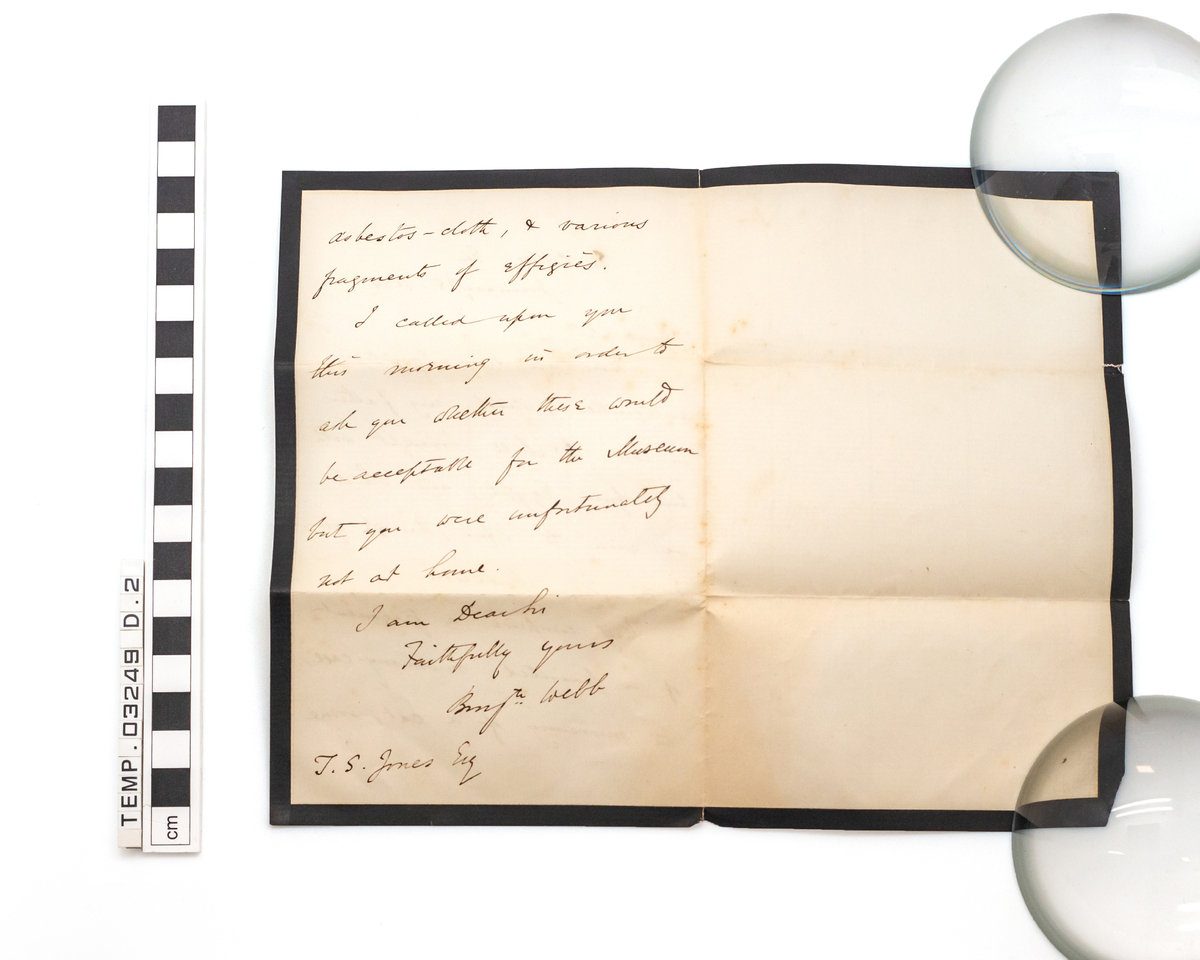 asbestos-cloth, & various
fragments of effigies.
I called upon you
this morning in order to
ask you whether these would
be acceptable for the Museum
but you were unfortunately
not at home.
I am Dear Sir
Faithfully yours
Benjn Webb
T. S. Jones Esq
TEMP.03249 D.2
cm